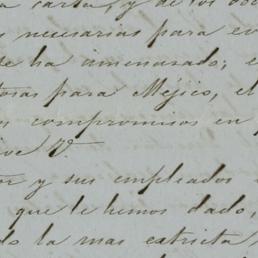 a carta, y de los doc
s necesarias para ev
e ha amenazado; e
osas para Méjico, el
s compromisos en p
ve V.
or y sus empleados
que le hemos dado,
do la mas extricta